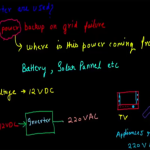 are used?
power backup on grid failure
where is this power coming from
Battery, Solar Pannel etc
→ 12V DC
12VDC → Inverter → 220VAC
TV
Appliances
220V